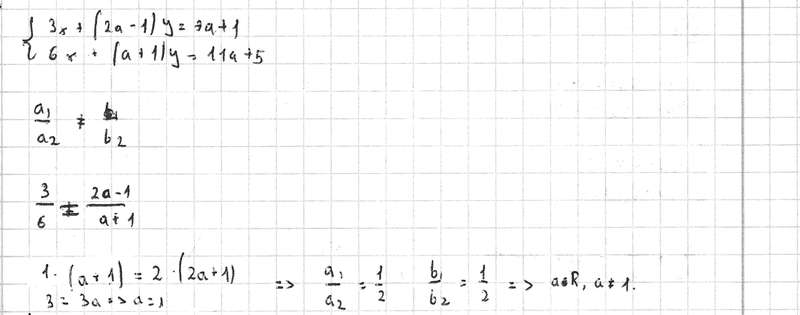 { 3x + (2a - 1) y = 7a + 1
6x + (a + 1) y = 11a + 5
a₁/a₂ ≠ b₁/b₂
3/6 ≠ (2a - 1)/(a + 1)
1 · (a + 1) = 2 · (2a + 1) => a₁/a₂ = 1/2 b₁/b₂ = 1/2 => a∈R, a ≠ 1.
3 = 3a => a = 1